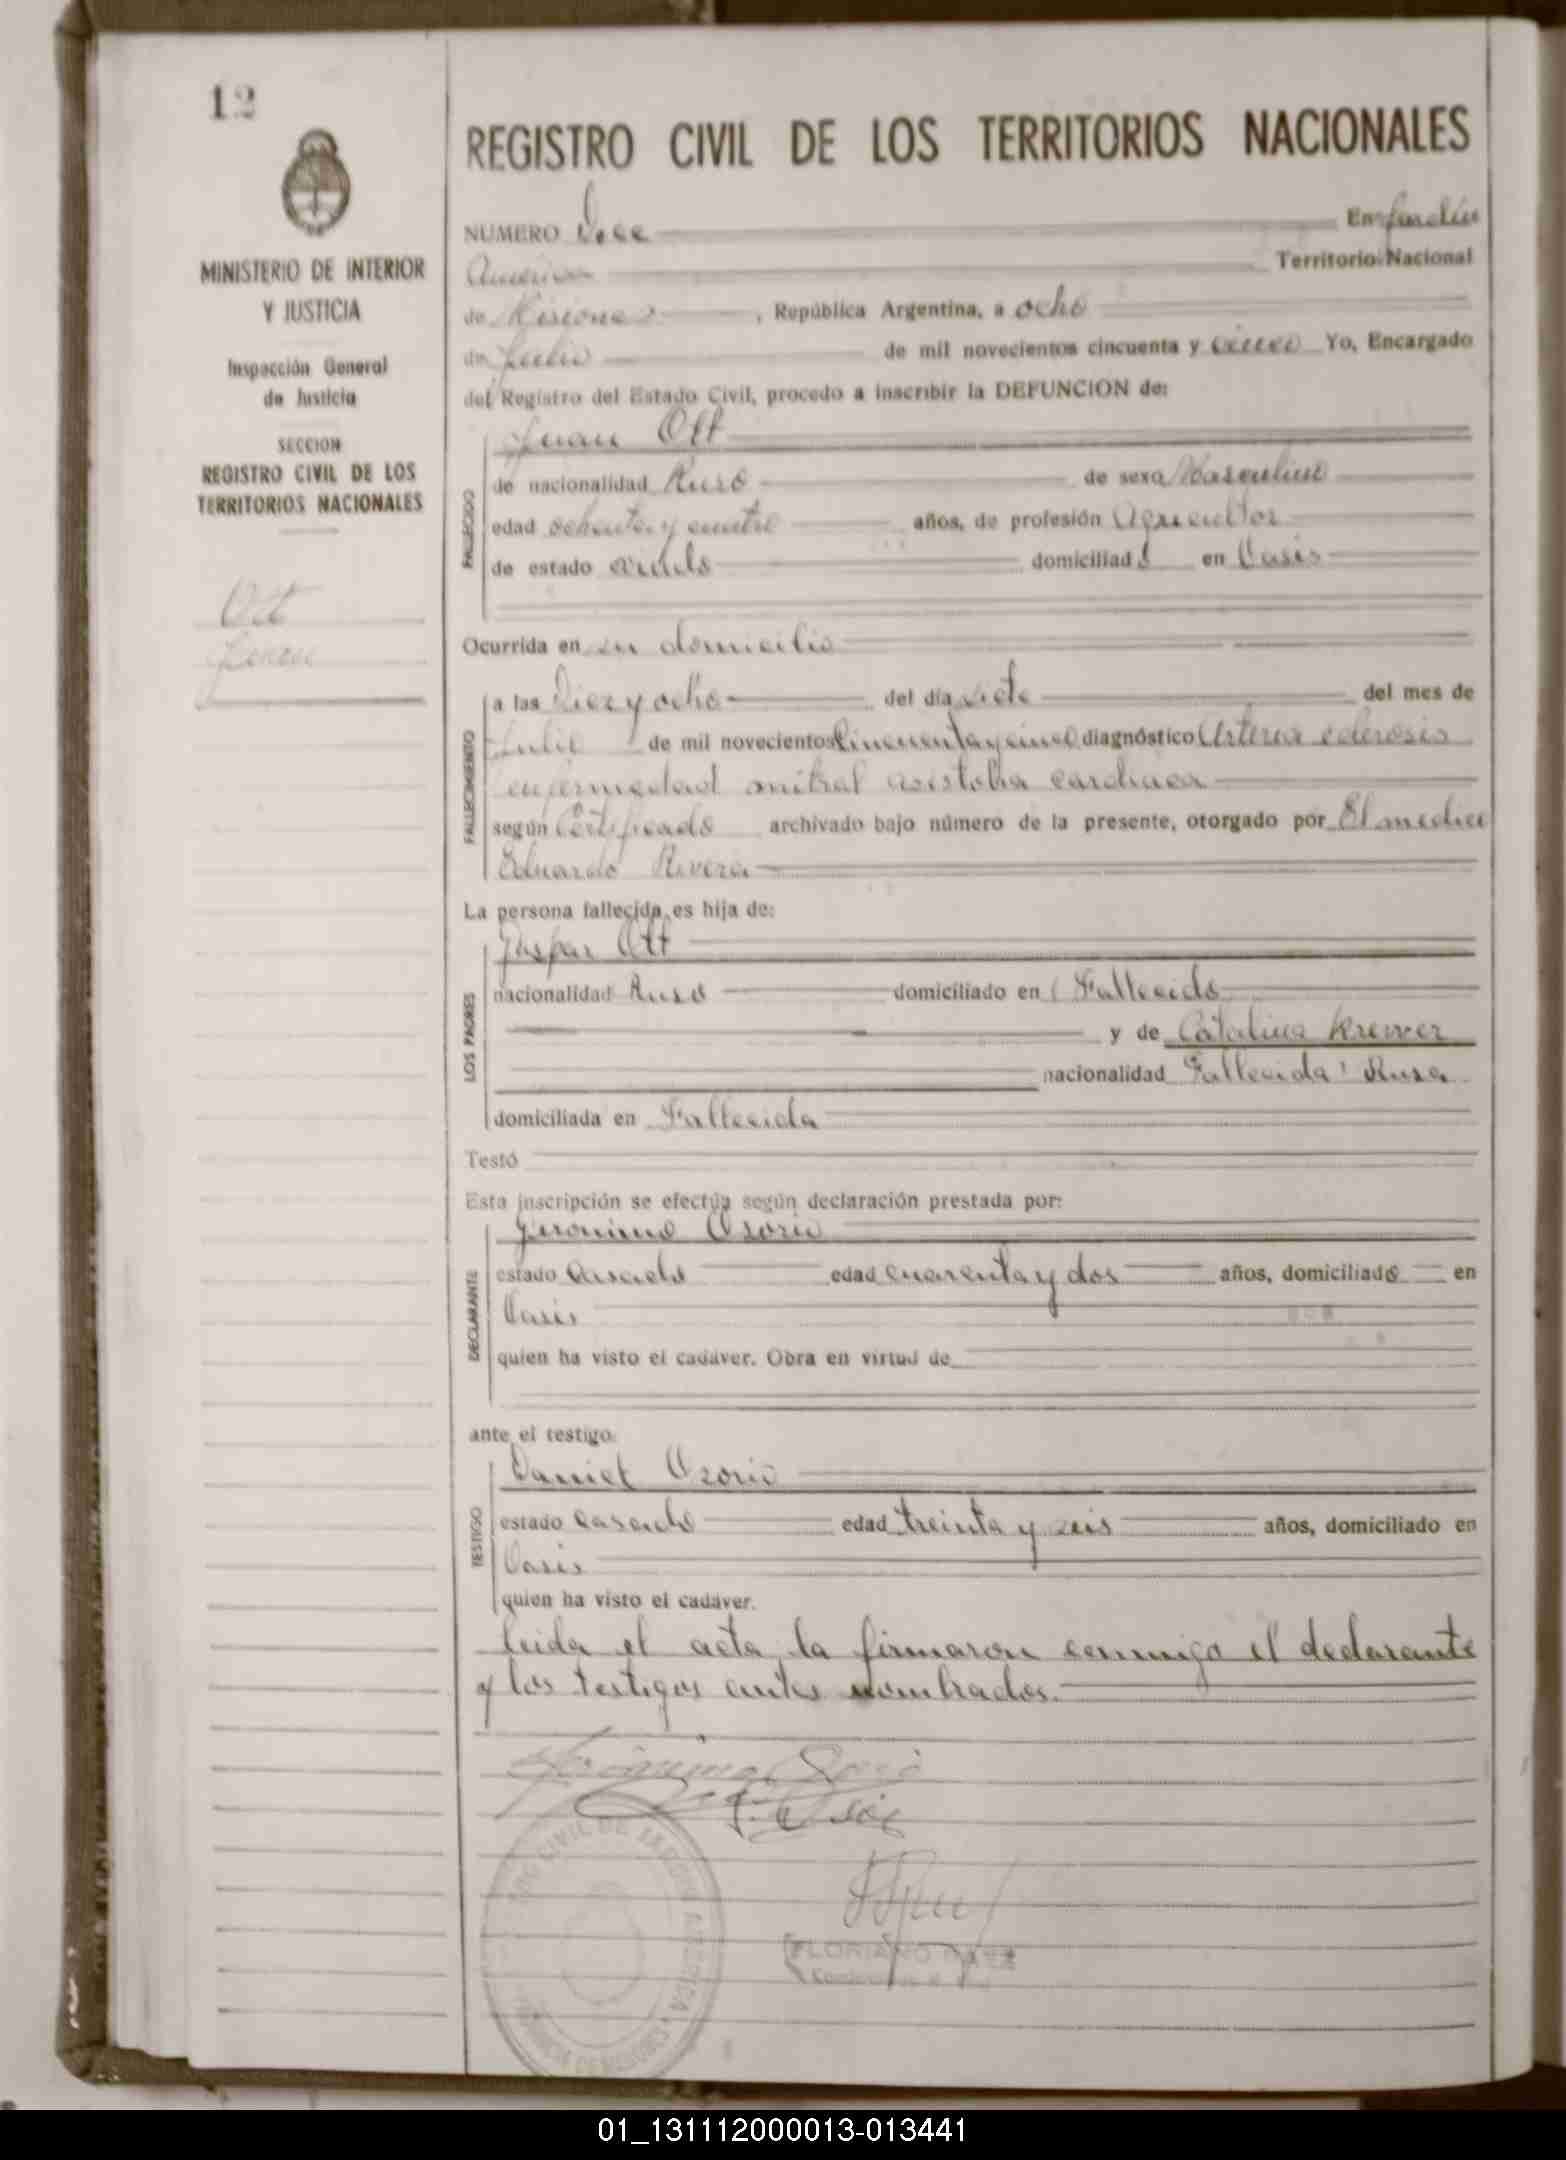 12
MINISTERIO DE INTERIOR
Y JUSTICIA
Inspección General
de Justicia
SECCION
REGISTRO CIVIL DE LOS
TERRITORIOS NACIONALES
Ott
Juan
REGISTRO CIVIL DE LOS TERRITORIOS NACIONALES
NUMERO Doce En Jardín
America Territorio Nacional
de Misiones, República Argentina, a ocho
de Julio de mil novecientos cincuenta y cinco Yo, Encargado
del Registro del Estado Civil, procedo a inscribir la DEFUNCION de:
Juan Ott
FALLECIDO
de nacionalidad Ruso de sexo Masculino
edad ochenta y cuatro años, de profesión Agricultor
de estado viudo domiciliado en Oasis
Ocurrida en su domicilio
FALLECIMIENTO
a las Diez y ocho del día siete del mes de
Julio de mil novecientos cincuenta y cinco diagnóstico Arteria eclerosis
enfermedad mitral asistolia cardiaca
según Certificado archivado bajo número de la presente, otorgado por El medico
Eduardo Rivera
La persona fallecida es hija de:
LOS PADRES
Gaspar Ott
nacionalidad Ruso domiciliado en Fallecido
y de Catalina Kremer
nacionalidad Fallecida Rusa
domiciliada en Fallecida
Testó
Esta inscripción se efectúa según declaración prestada por:
DECLARANTE
Jeronimo Osorio
estado Casado edad cuarenta y dos años, domiciliado en
Oasis
quien ha visto el cadáver. Obra en virtud de
ante el testigo:
TESTIGO
Daniel Osorio
estado casado edad treinta y seis años, domiciliado en
Oasis
quien ha visto el cadáver.
leida el acta, la firmaron conmigo el declarante
y los testigos antes nombrados.
FLORIANO
01_131112000013-013441